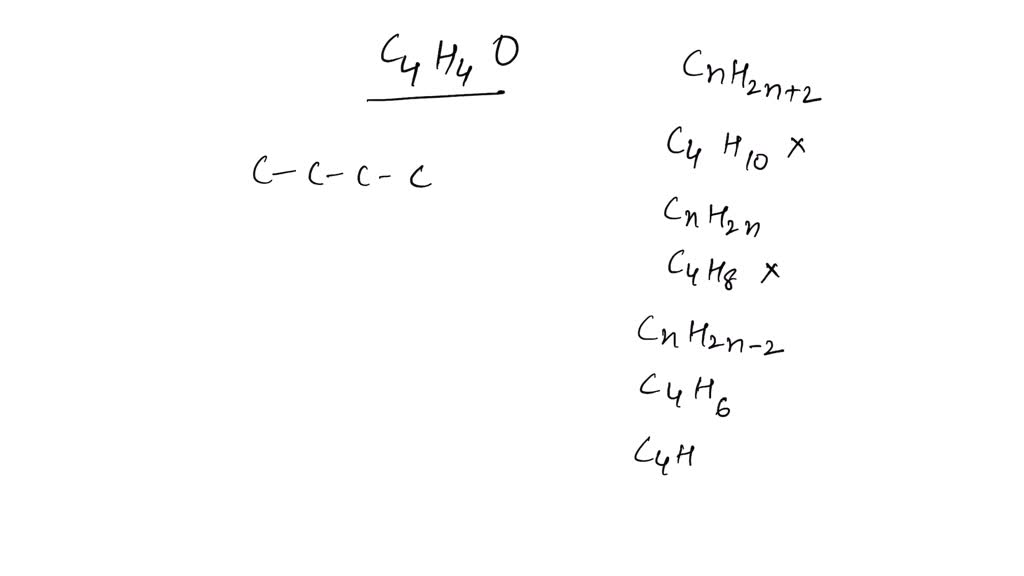 C₄H₄O
C-C-C-C
CnH2n+2
C₄H₁₀ ×
CnH2n
C₄H₈ ×
CnH2n-2
C₄H₆
C₄H